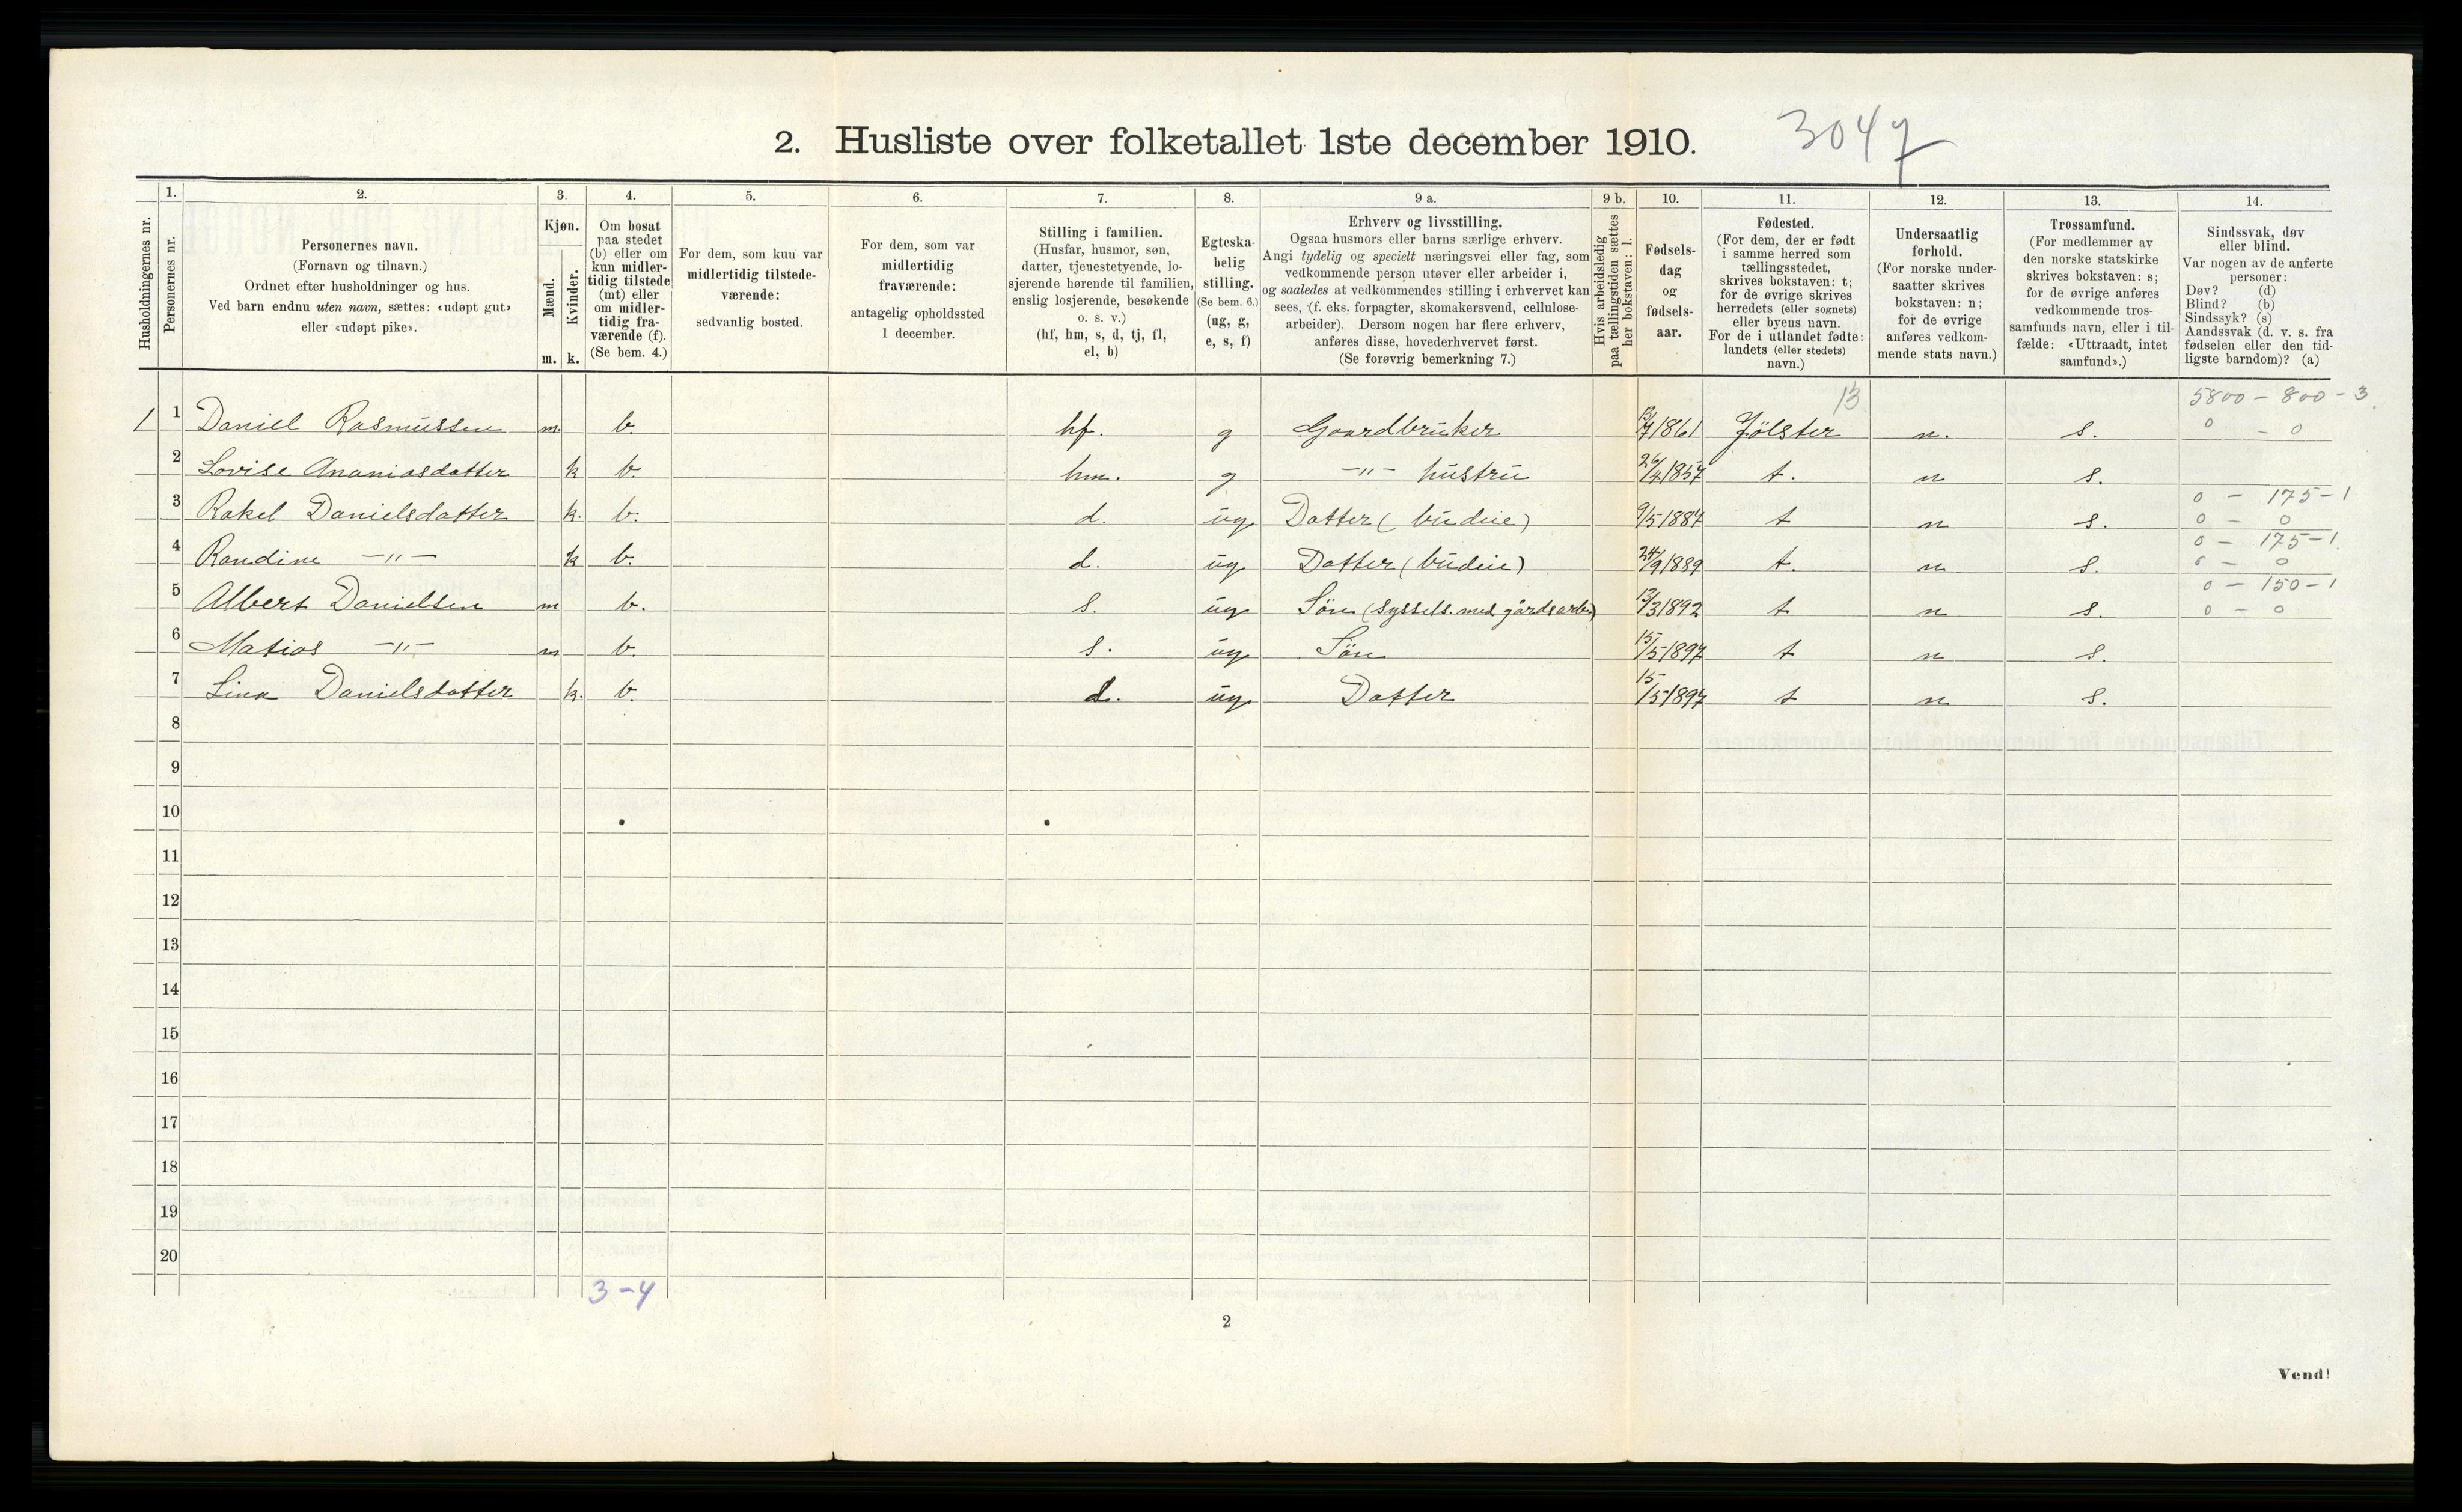 2. Husliste over folketallet 1ste december 1910. 3047
1. 2. 3. 4. 5. 6. 7. 8. 9 a. 9 b. 10. 11. 12. 13. 14.
Husholdningernes nr.
Personernes nr.
Personernes navn.
(Fornavn og tilnavn.)
Ordnet efter husholdninger og hus.
Ved barn endnu uten navn, sættes: «udøpt gut»
eller «udøpt pike».
Kjøn.
Mænd.
Kvinder.
m. k.
Om bosat
paa stedet
(b) eller om
kun midler-
tidig tilstede
(mt) eller
om midler-
tidig fra-
værende (f).
(Se bem. 4.)
For dem, som kun var
midlertidig tilstede-
værende:
sedvanlig bosted.
For dem, som var
midlertidig
fraværende:
antagelig opholdssted
1 december.
Stilling i familien.
(Husfar, husmor, søn,
datter, tjenestetyende, lo-
sjerende hørende til familien,
enslig losjerende, besøkende
o. s. v.)
(hf, hm, s, d, tj, fl,
el, b)
Egteska-
belig
stilling.
(Se bem. 6.)
(ug, g,
e, s, f)
Erhverv og livsstilling.
Ogsaa husmors eller barns særlige erhverv.
Angi tydelig og specielt næringsvei eller fag, som
vedkommende person utøver eller arbeider i,
og saaledes at vedkommendes stilling i erhvervet kan
sees, (f. eks. forpagter, skomakersvend, cellulose-
arbeider). Dersom nogen har flere erhverv,
anføres disse, hovederhvervet først.
(Se forøvrig bemerkning 7.)
Hvis arbeidsledig
paa tællingstiden sættes
her bokstaven: l.
Fødsels-
dag
og
fødsels-
aar.
Fødested.
(For dem, der er født
i samme herred som
tællingsstedet,
skrives bokstaven: t;
for de øvrige skrives
herredets (eller sognets)
eller byens navn.
For de i utlandet fødte:
landets (eller stedets)
navn.)
Undersaatlig
forhold.
(For norske under-
saatter skrives
bokstaven: n;
for de øvrige
anføres vedkom-
mende stats navn.)
Trossamfund.
(For medlemmer av
den norske statskirke
skrives bokstaven: s;
for de øvrige anføres
vedkommende tros-
samfunds navn, eller i til-
fælde: «Uttraadt, intet
samfund».)
Sindssvak, døv
eller blind.
Var nogen av de anførte
personer:
Døv? (d)
Blind? (b)
Sindssyk? (s)
Aandssvak (d. v. s. fra
fødselen eller den tid-
ligste barndom)? (a)
13 5800 – 800 – 3
1 1 Daniel Rasmussen m. b. hf. g Gaardbruker 13/7 1861 Jölster n. s. 0 – 0
2 Lovise Ananiasdatter k b. hm. g –"– hustru 26/4 1857 t. n s.
0 – 175 – 1
3 Rakel Danielsdatter k. b. d. ug Datter (budeie) 9/5 1887 t n s. 0 – 0
0 – 175 – 1
4 Randine –"– k b. d. ug Datter (budeie) 24/9 1889 t. n s. 0 – 0
0 – 150 – 1
5 Albert Danielsen m b. s. ug Sön (syssels. med gårdsarb.) 13/3 1892 t n s. 0 – 0
6 Matias –"– m b. s. ug Sön 15/5 1897 t n s.
7 Lina Danielsdatter k. b. d. ug Datter 15/5 1897 t n s.
8
9
10
11
12
13
14
15
16
17
18
19
20
3–4
2
Vend!